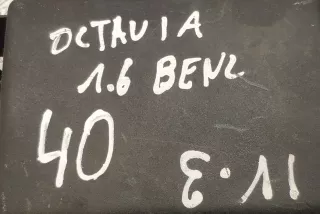 OCTAVIA
1.6 BENZ
40